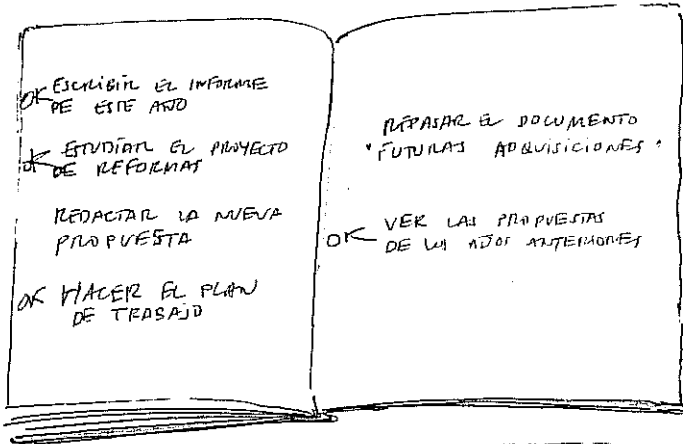 OK ESCRIBIR EL INFORME
DE ESTE AÑO
OK ESTUDIAR EL PROYECTO
DE REFORMAS
REDACTAR LA NUEVA
PROPUESTA
OK HACER EL PLAN
DE TRABAJO
REPASAR EL DOCUMENTO
"FUTURAS ADQUISICIONES"
OK VER LAS PROPUESTAS
DE LOS AÑOS ANTERIORES